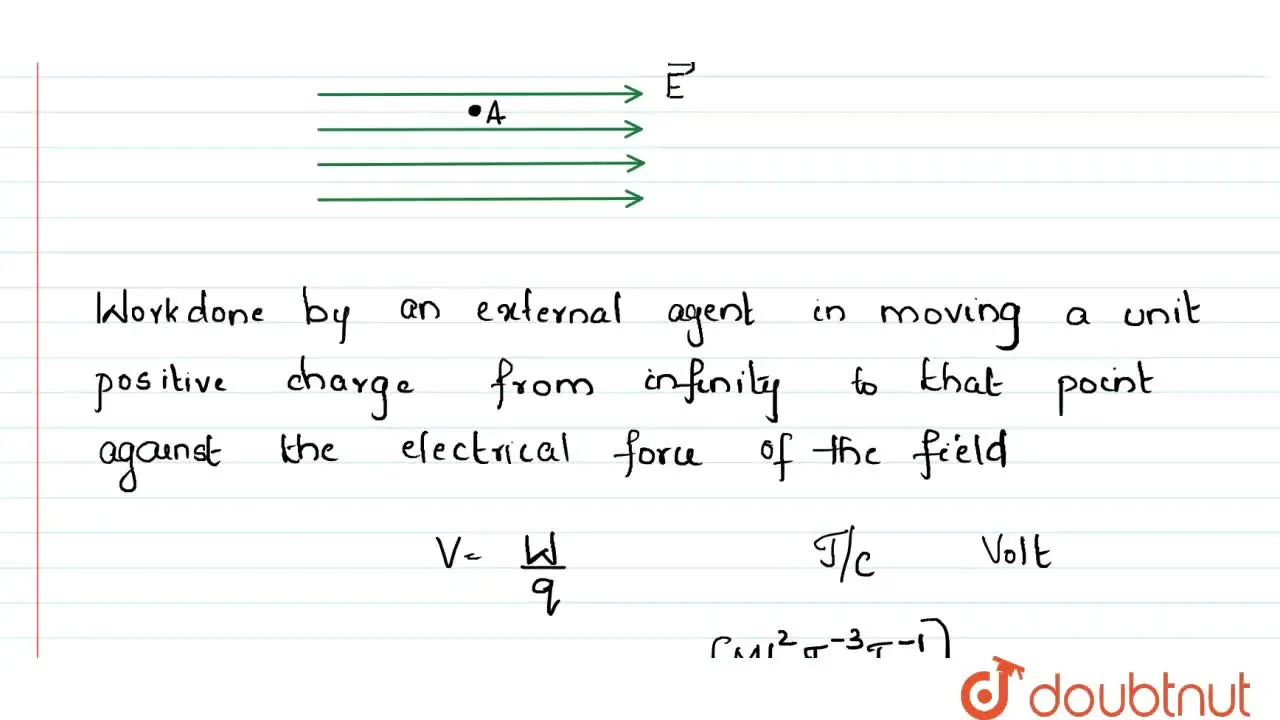 E
A
Workdone by an external agent in moving a unit
positive charge from infinity to that point
against the electrical force of the field
V = W/q J/C Volt
[ML²T⁻³I⁻¹]
doubtnut